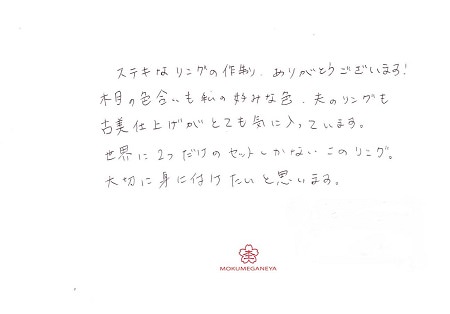 ステキなリングの作制、ありがとうございます!
木目の色合いも私の好みな色、夫のリングも
古美仕上げがとても気に入っています。
世界に2つだけのセットしかないこのリング。
大切に身に付けたいと思います。
MOKUMEGANEYA